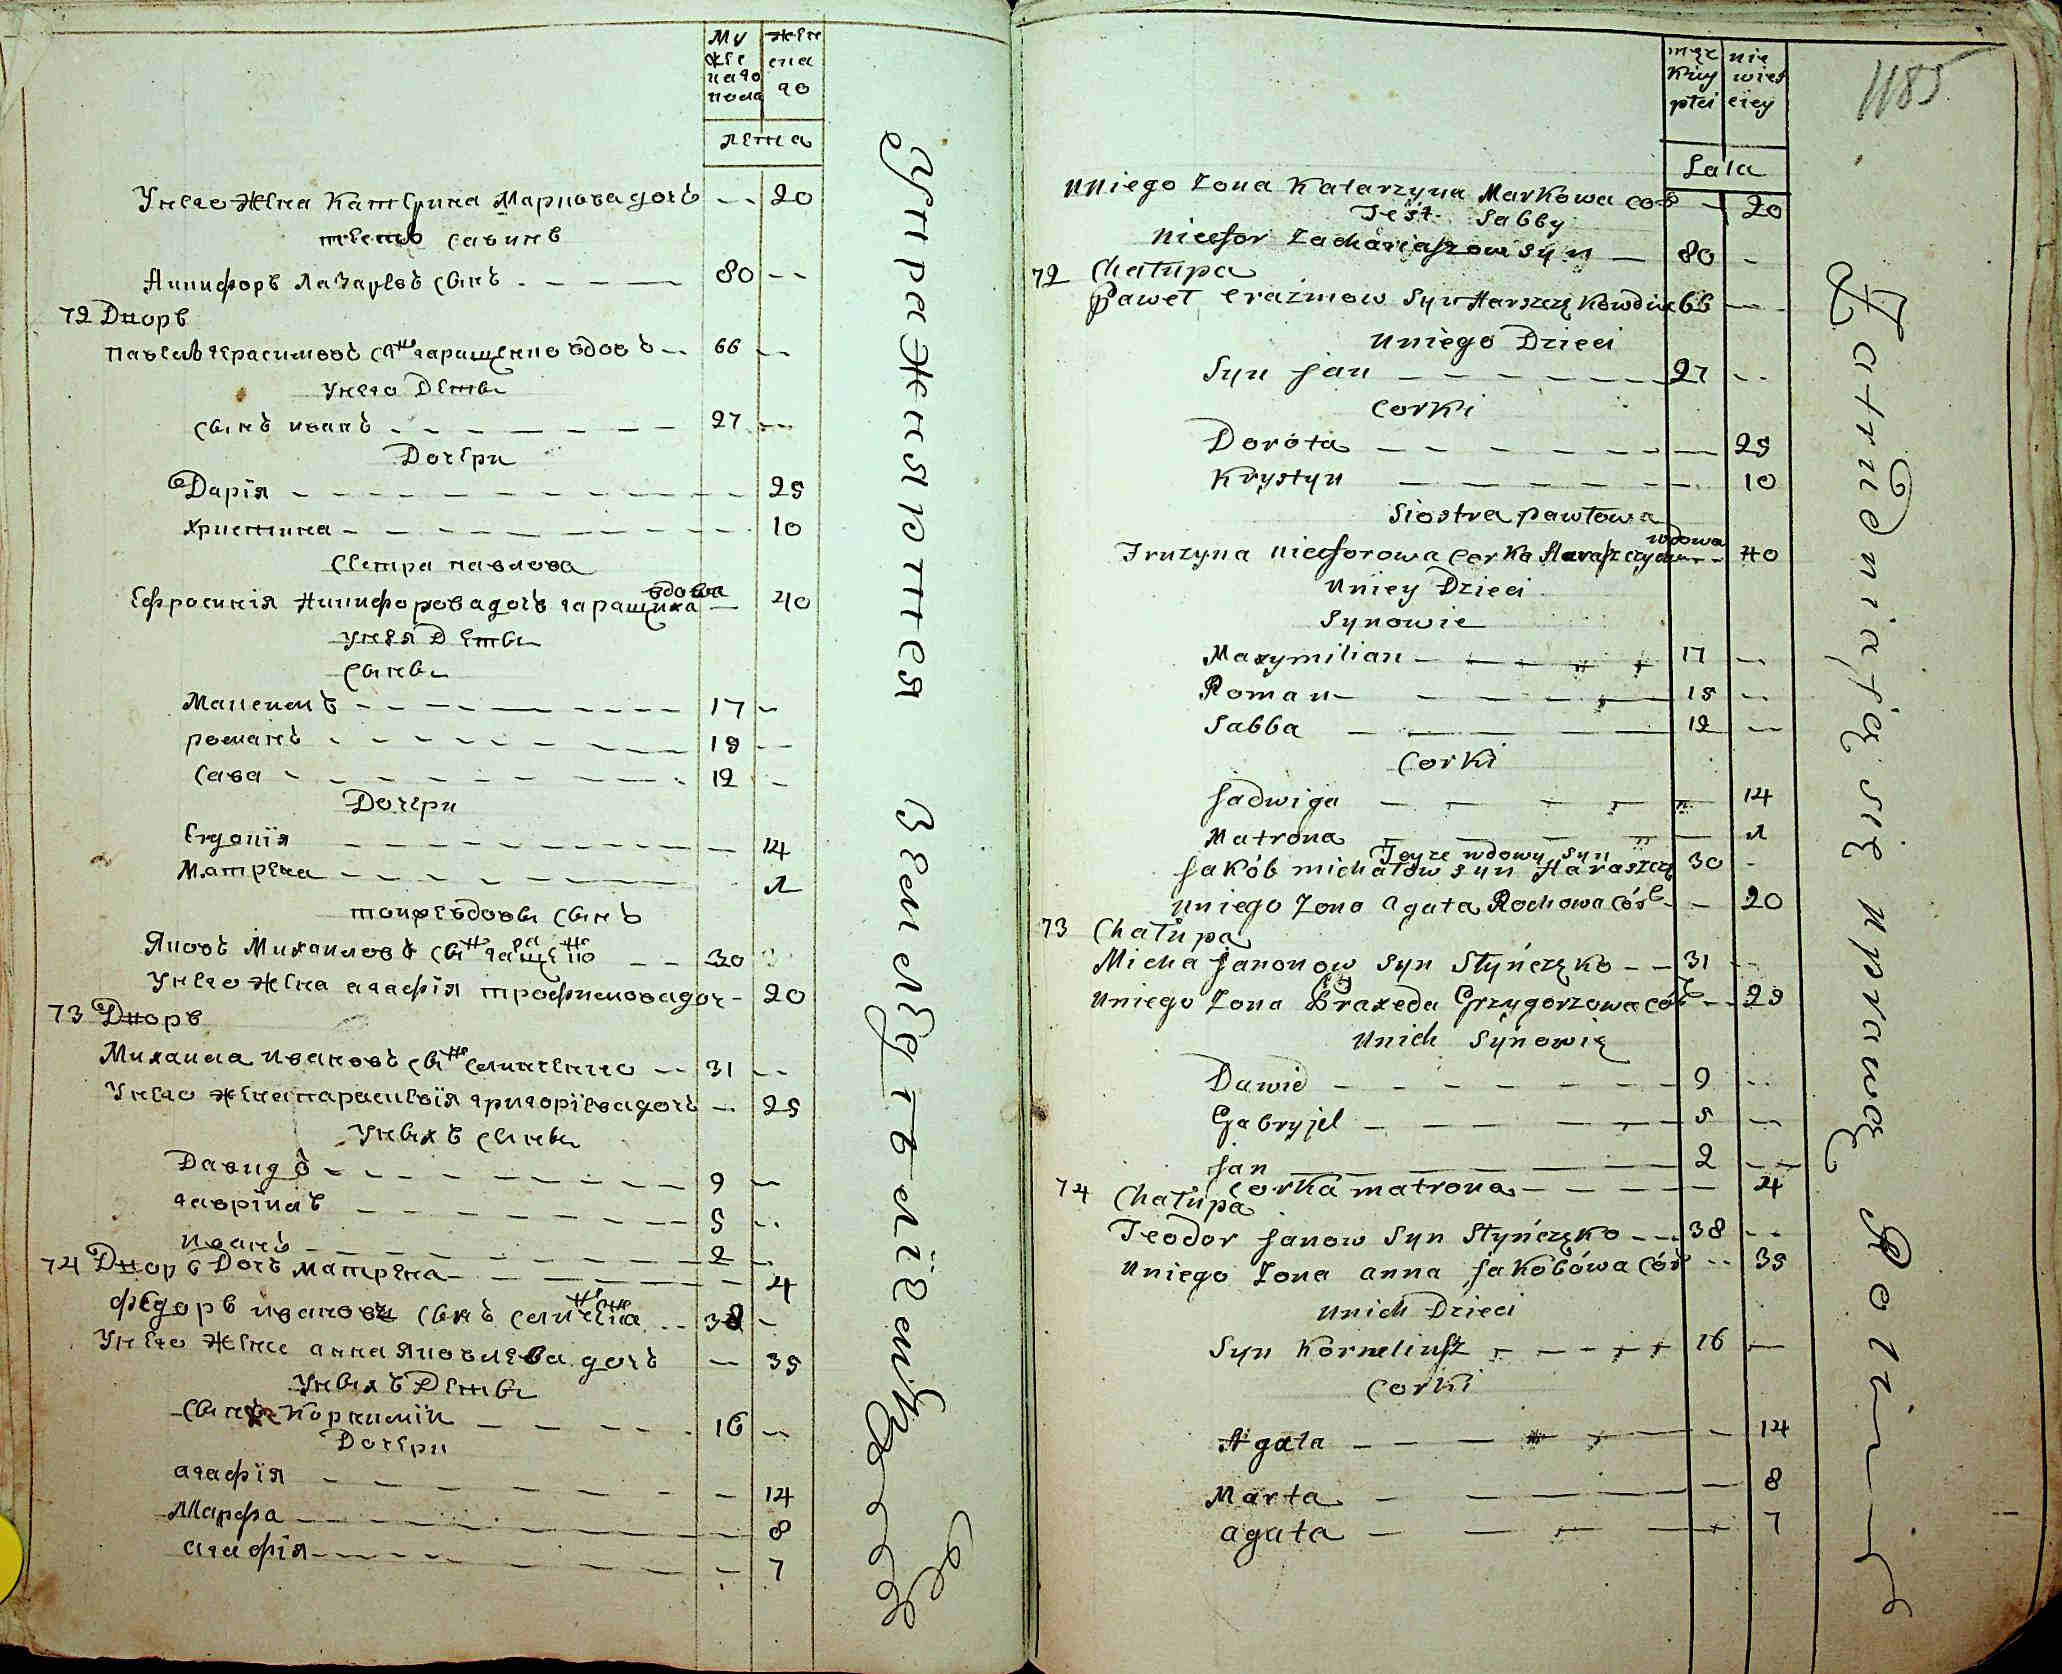 Му жен
жес ска
каго го
пола
лета
Унего Жена Катерина Маркова дочь -- 20
тесть савинъ
Никифоръ Лазаревъ сынъ 80 --
72 Дворъ
павелъ герасимовъ сынъ гаращенко вдовъ -- 66 --
Унего Дети
сынъ иванъ 27 --
Дочери
Дарїя 25
христина 10
Сестра павлова
вдова
Ефросинія Никифорова дочь гаращиха 40
Унея Дети
Сыны
Максимъ 17 -
романъ 15 --
Сава 12 -
Дочери
Евдокїя 14
Матрена 1
тойже вдовы сынъ
Яковъ Михаиловъ сынъ гаращенко 30
Унего Жена агафїя трофимова доч - 20
73 Дворъ
Михаила ивановъ сынъ 31 --
Унего жена параскевїя григорїева дочь 25
Унихъ сыны
Давидъ 9 --
гаврїилъ 5 --
иванъ 2 --
74 Дворъ Дочь матрена 4
федоръ ивановъ сынъ 38 -
Унего Жена анна яковлева дочь -- 35
Унихъ Дети
Сынъ Корнилїй 16 --
Дочери
агафїя 14
Марфа 8
агафїя 7
упражняются Земледелїемъ
męz nie
kiey wies
płci ciey
Lata
1185
Uniego Zona Katarzyna Markowa cor - 20
Teść Sabby
Nicefor Zachariaszow Syn 80 -
72 Chałupa
Paweł erazmow Syn Harszczę Kowdiec 66 --
Uniego Dzieci
Syn Jan 27 --
Corki
Dorota 25
Krystyn 10
Siostra pawłowa
wdowa
Fruzyna niceforowa corka Haraszczycha 40
Uniey Dzieci
Synowie
Maxymilian 17 --
Roman 15 --
Sabba 12 --
Corki
Jadwiga 14
Matrona 1
Teyze wdowy Syn
Jakób michałow syn Haraszczę 30 -
Uniego Zona agata Rochowa Cór - 20
73 Chałupa
Micha Janonow Syn Słyńczęko -- 31 --
Uniego Zona Praxeda Grzygorzowa Cór -- 25
Unich Synowie
Dawid 9 --
Gabryjel 5 --
Jan 2 --
Corka matrona 4
74 Chałupa
Teodor Janow Syn Słyńczęko 38 --
Uniego Zona anna Jakóbówa Cór -- 35
Unich Dzieci
Syn Korneliusz 16 --
Corki
Agata 14
Marta 8
agata 7
Zatrudniaią się uprawą Roli